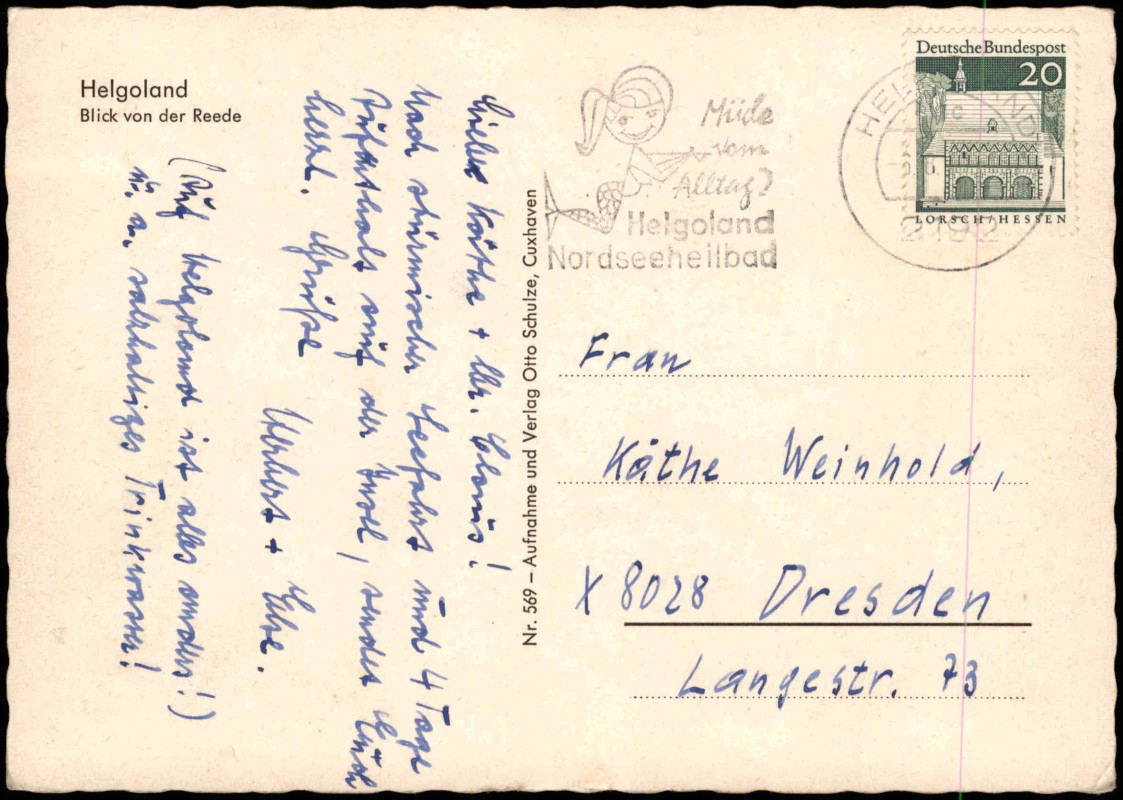 Helgoland
Blick von der Reede
Liebes Käthe + Claus!
nach stürmischer Seefahrt und 4 Tage
Aufenthalt auf der Insel, sendet Euch
herzl. Grüße
Herbert + Else.
(Auf Helgoland ist alles anders!)
u. a. salzhaltiges Trinkwasser!
Nr. 569 – Aufnahme und Verlag Otto Schulze, Cuxhaven
Müde
vom
Alltag?
Helgoland
Nordseeheilbad
HELGOLAND
c
2192
Deutsche Bundespost
20
LORSCH/HESSEN
Frau
Käthe Weinhold,
X 8028 Dresden
Langestr. 73